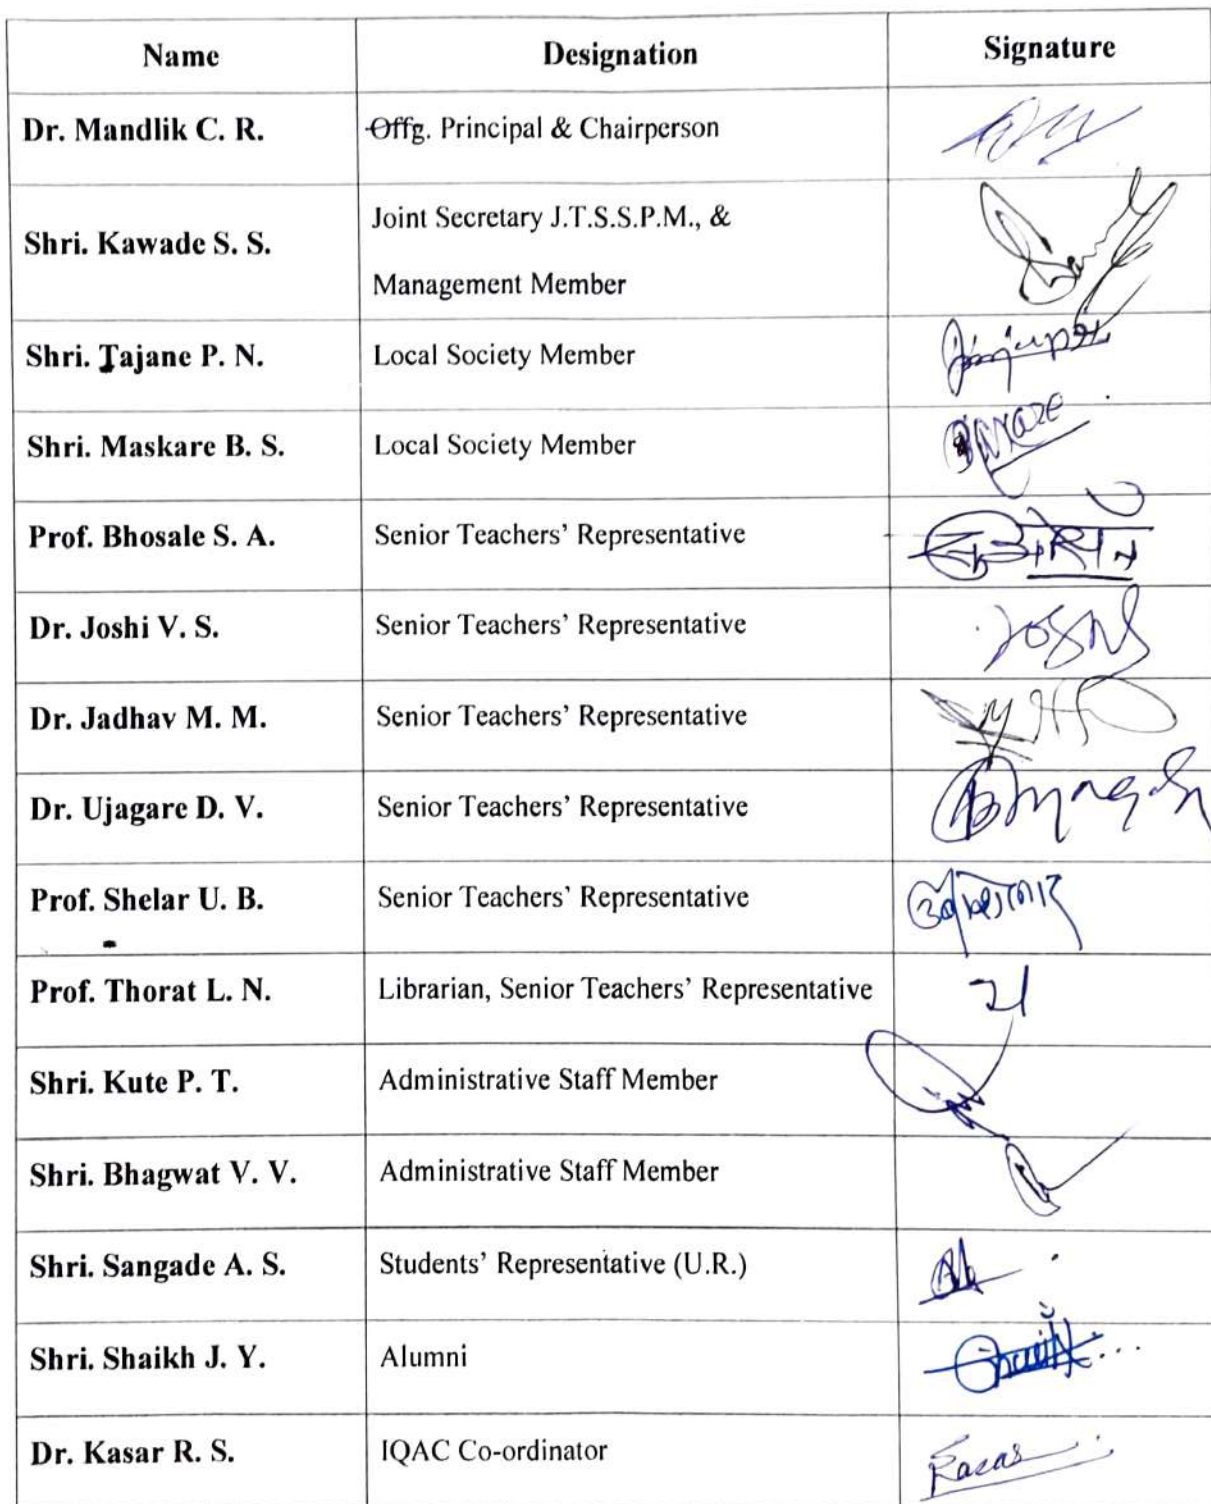 Name Designation Signature
Dr. Mandlik C. R. Offg. Principal & Chairperson
Joint Secretary J.T.S.S.P.M., &
Shri. Kawade S. S.
Management Member
Shri. Tajane P. N. Local Society Member
Shri. Maskare B. S. Local Society Member
Prof. Bhosale S. A. Senior Teachers' Representative
Dr. Joshi V. S. Senior Teachers' Representative
Dr. Jadhav M. M. Senior Teachers' Representative
Dr. Ujagare D. V. Senior Teachers' Representative
Prof. Shelar U. B. Senior Teachers' Representative
Prof. Thorat L. N. Librarian, Senior Teachers' Representative
Shri. Kute P. T. Administrative Staff Member
Shri. Bhagwat V. V. Administrative Staff Member
Shri. Sangade A. S. Students' Representative (U.R.)
Shri. Shaikh J. Y. Alumni
Dr. Kasar R. S. IQAC Co-ordinator